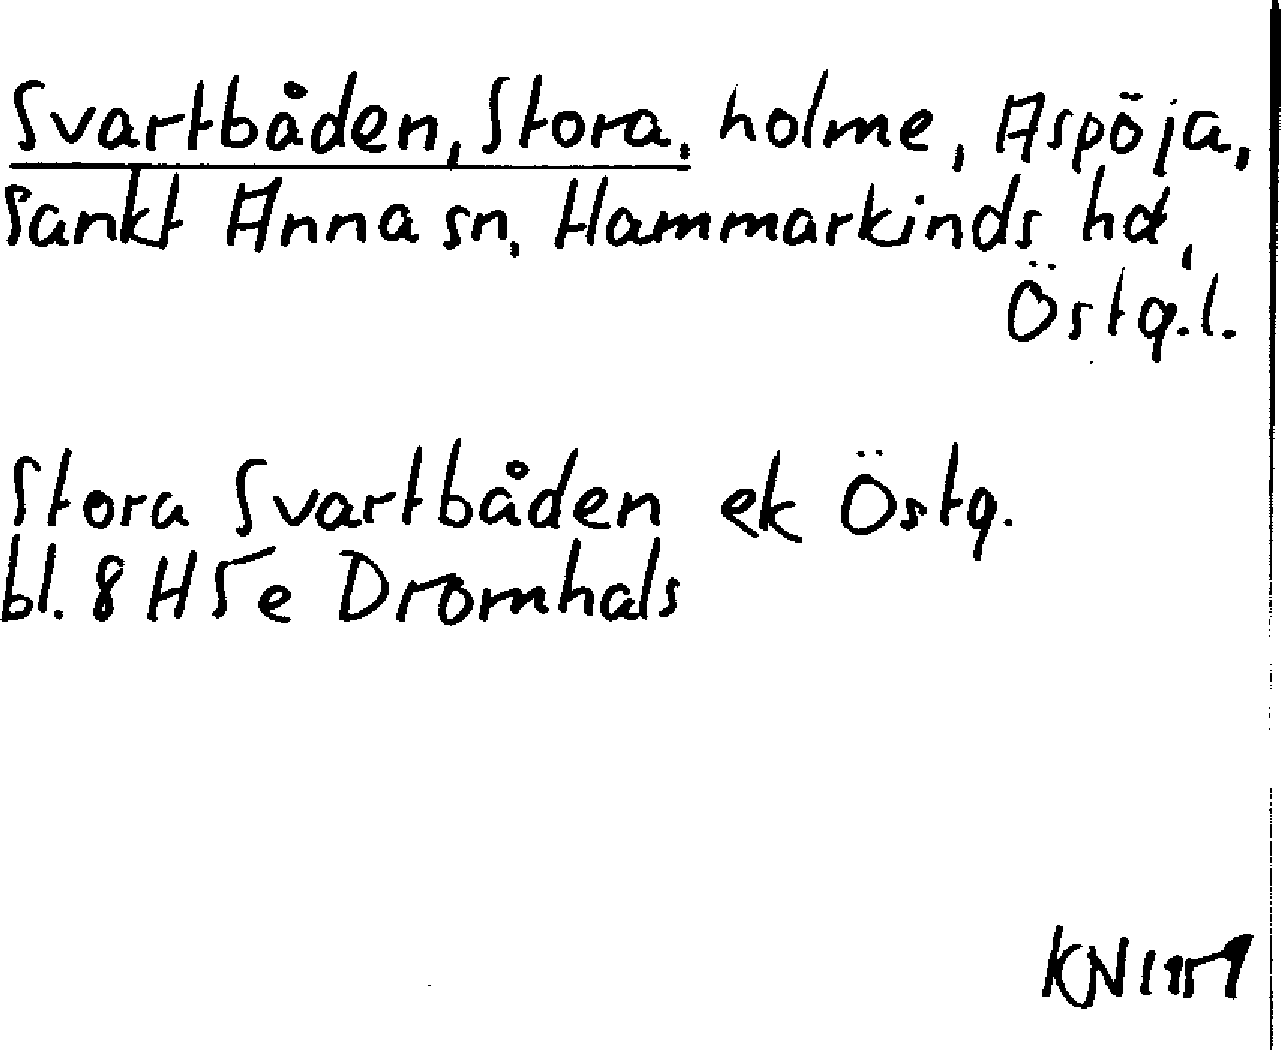 Svartbåden, Stora, holme, Aspöja,
Sankt Anna sn, Hammarkinds hd,
Östg.l.
Stora Svartbåden ek Östg.
bl. 8 H 5 e Dromhals
KN 1959